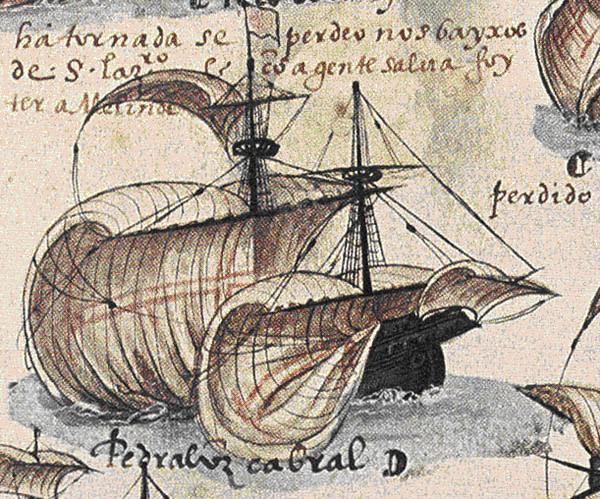 há tornada se perdeo nos bayxos
de S. Lazro e cõ a gente salva foy
ter a Melinde
perdido
Pedralvz cabral D